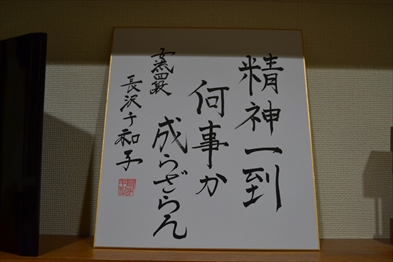 精神一到
何事か
成らざらん
長沢千和子